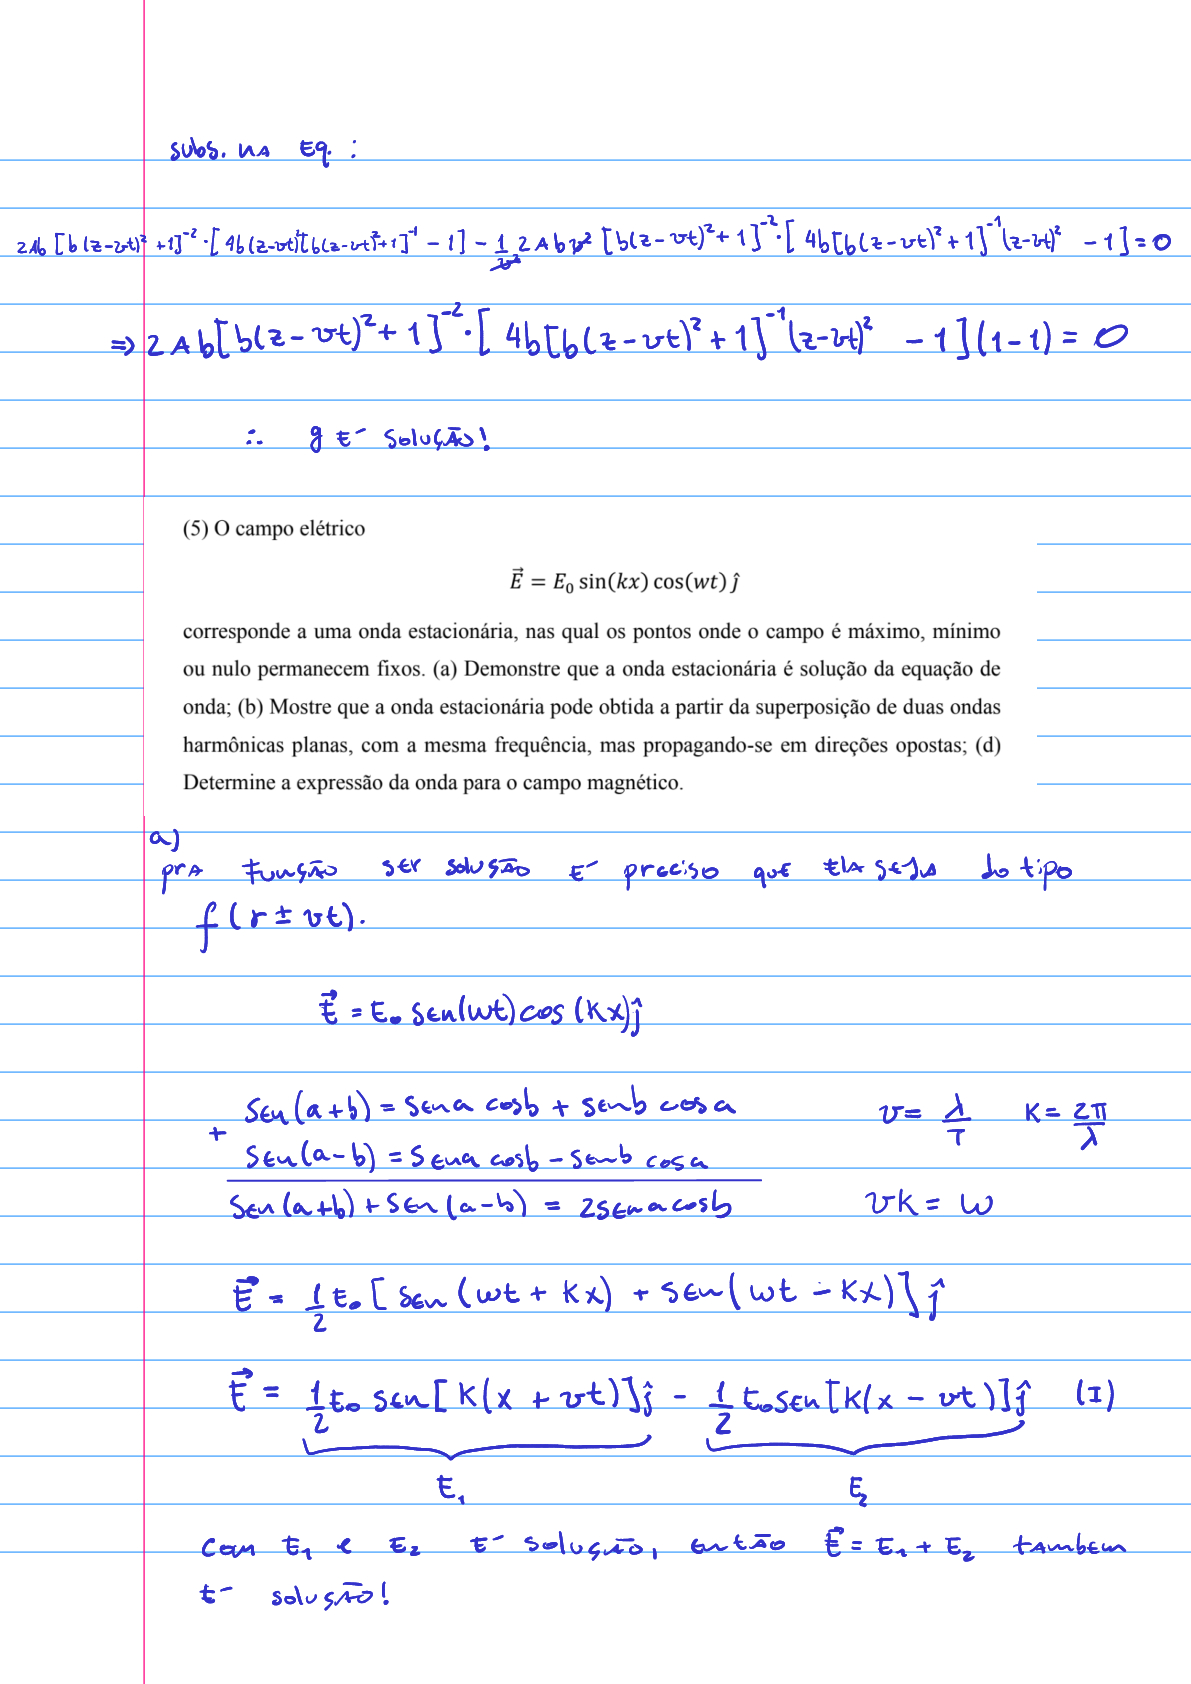 subs. na Eq. :
2Ab [b(z-vt)² +1]⁻² · [4b(z-vt)²[b(z-vt)²+1]⁻¹ - 1] - 1/v² 2Abv² [b(z-vt)²+1]⁻² · [4b[b(z-vt)²+1]⁻¹(z-vt)² - 1] = 0
⇒ 2Ab[b(z-vt)²+1]⁻² · [4b[b(z-vt)²+1]⁻¹(z-vt)² - 1](1-1) = 0
∴ g é solução!
(5) O campo elétrico
E⃗ = E₀ sin(kx) cos(wt) ĵ
corresponde a uma onda estacionária, nas qual os pontos onde o campo é máximo, mínimo
ou nulo permanecem fixos. (a) Demonstre que a onda estacionária é solução da equação de
onda; (b) Mostre que a onda estacionária pode obtida a partir da superposição de duas ondas
harmônicas planas, com a mesma frequência, mas propagando-se em direções opostas; (d)
Determine a expressão da onda para o campo magnético.
a)
pra função ser solução é preciso que ela seja do tipo
f(r ± vt).
E⃗ = E₀ sen(wt) cos(kx) ĵ
sen(a+b) = sena cosb + senb cosa v = λ/T k = 2π/λ
+
sen(a-b) = sena cosb - senb cosa
sen(a+b) + sen(a-b) = 2sena cosb vk = w
E⃗ = 1/2 E₀ [sen(wt + kx) + sen(wt - kx)] ĵ
E⃗ = 1/2 E₀ sen[k(x + vt)] ĵ - 1/2 E₀ sen[k(x - vt)] ĵ (I)
E₁ E₂
com E₁ e E₂ é solução, então E⃗ = E₁ + E₂ também
é solução!